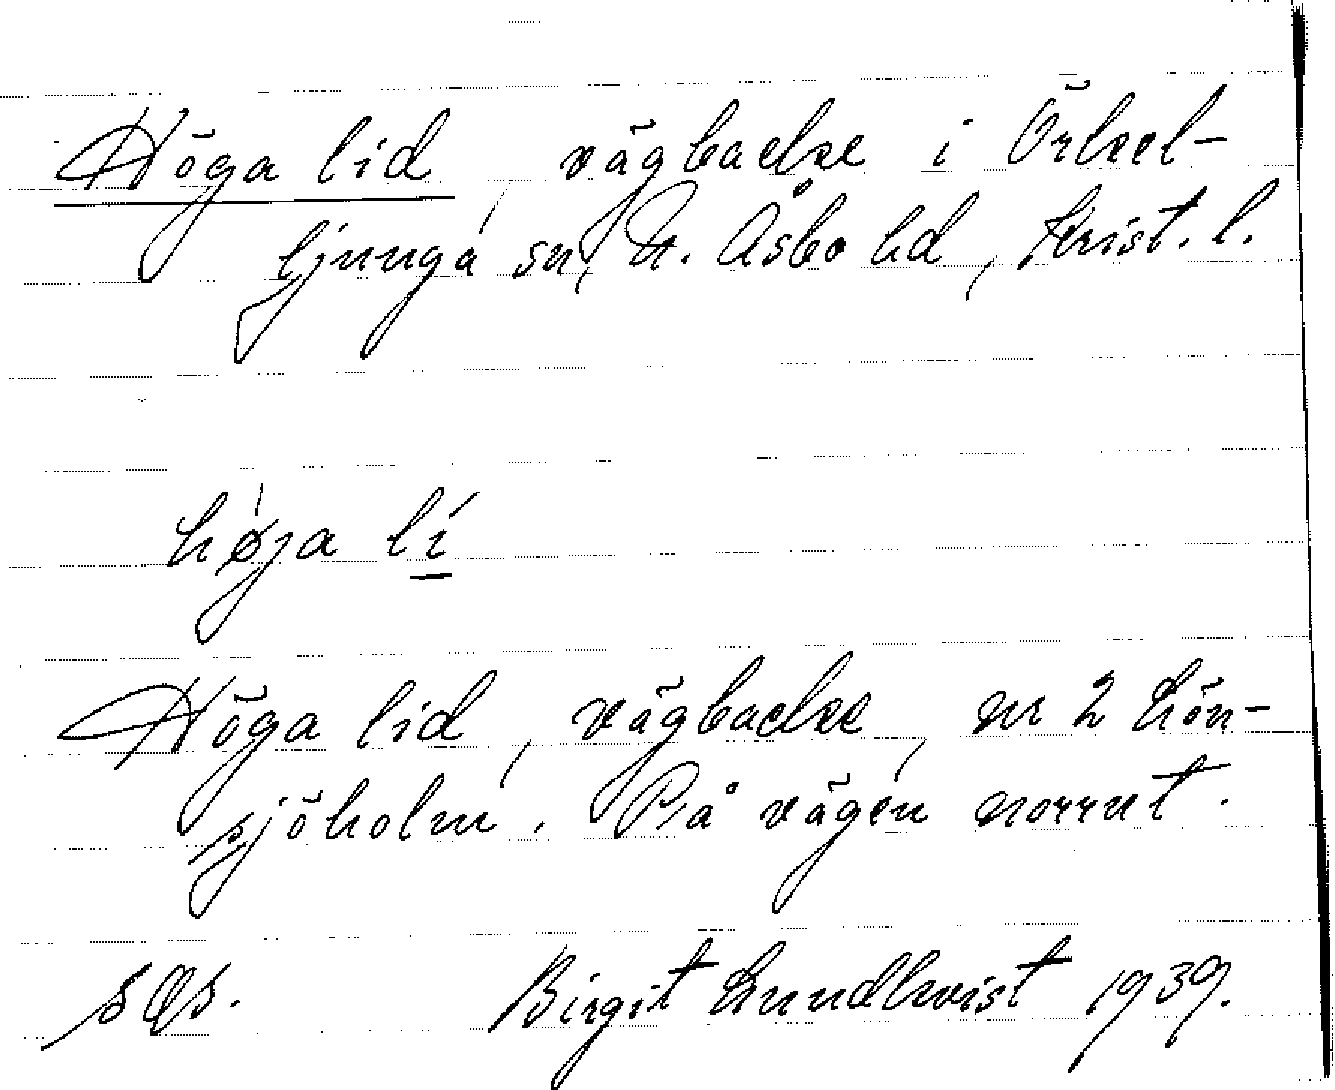 Höga lid, vägbacke i Örkel-
ljunga sn, N. Åsbo hd, Krist. l.
hø̀ja lí
Höga lid, vägbacke, nr 2 Lön-
sjöholm. På vägen norrut.
Birgit Lundkvist 1939.